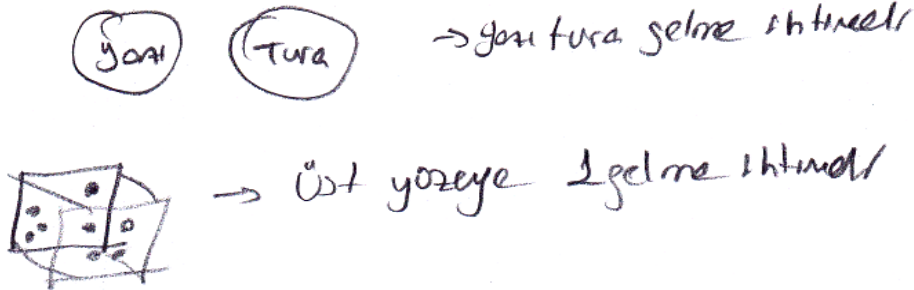 Yazı Tura → yazı tura gelme ihtimali
→ Üst yüzeye 1 gelme ihtimali